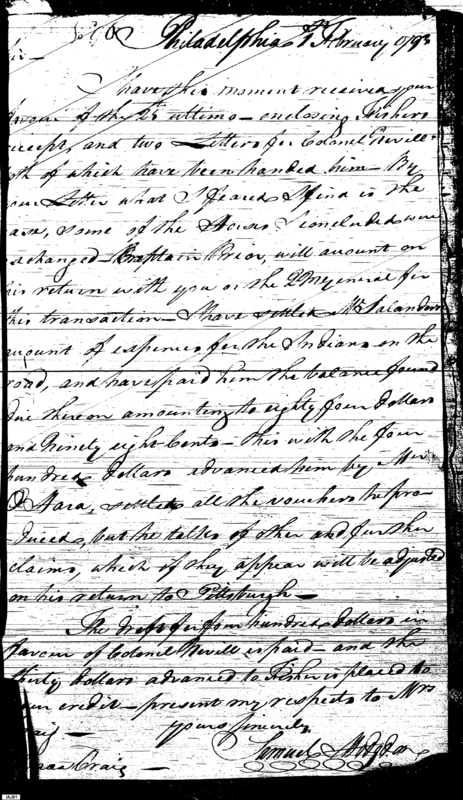 Philadelphia February 1793
Sir
I have this moment received your
favour of the 25th ultimo - enclosing Fishers
receipt, and two Letters for Colonel Nevill -
both of which have been handed him - By
your Letter what I feared I find is the
case, some of the Horses I concluded were
exchanged - Captain Prior, will account on
his return with you or the 2 M General for
this transaction - I have settled Mr
amount of expences for the Indians on the
road, and have paid him the balance found
due thereon amounting to eighty four Dollars
and Ninety eight Cents - this with the four
hundred Dollars advanced him by Mr
O Hara, settles all the vouchers he pro-
duced, but he talks of other and further
claims, which if they appear will be adjusted
on his return to Pittsburgh -
The draft for four hundred dollars in
favour of Colonel Nevill is paid - and the
thirty Dollars advanced to Fisher is placed to
your credit - present my respects to Mrs
Craig - yours sincerely
Samuel Hodgdon
Isaac Craig